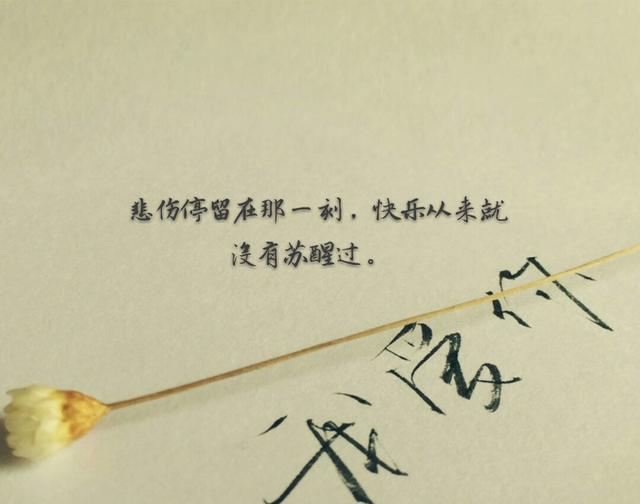 悲伤停留在那一刻，快乐从来就
没有苏醒过。